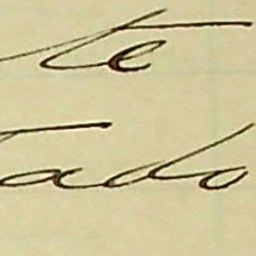 te
tado